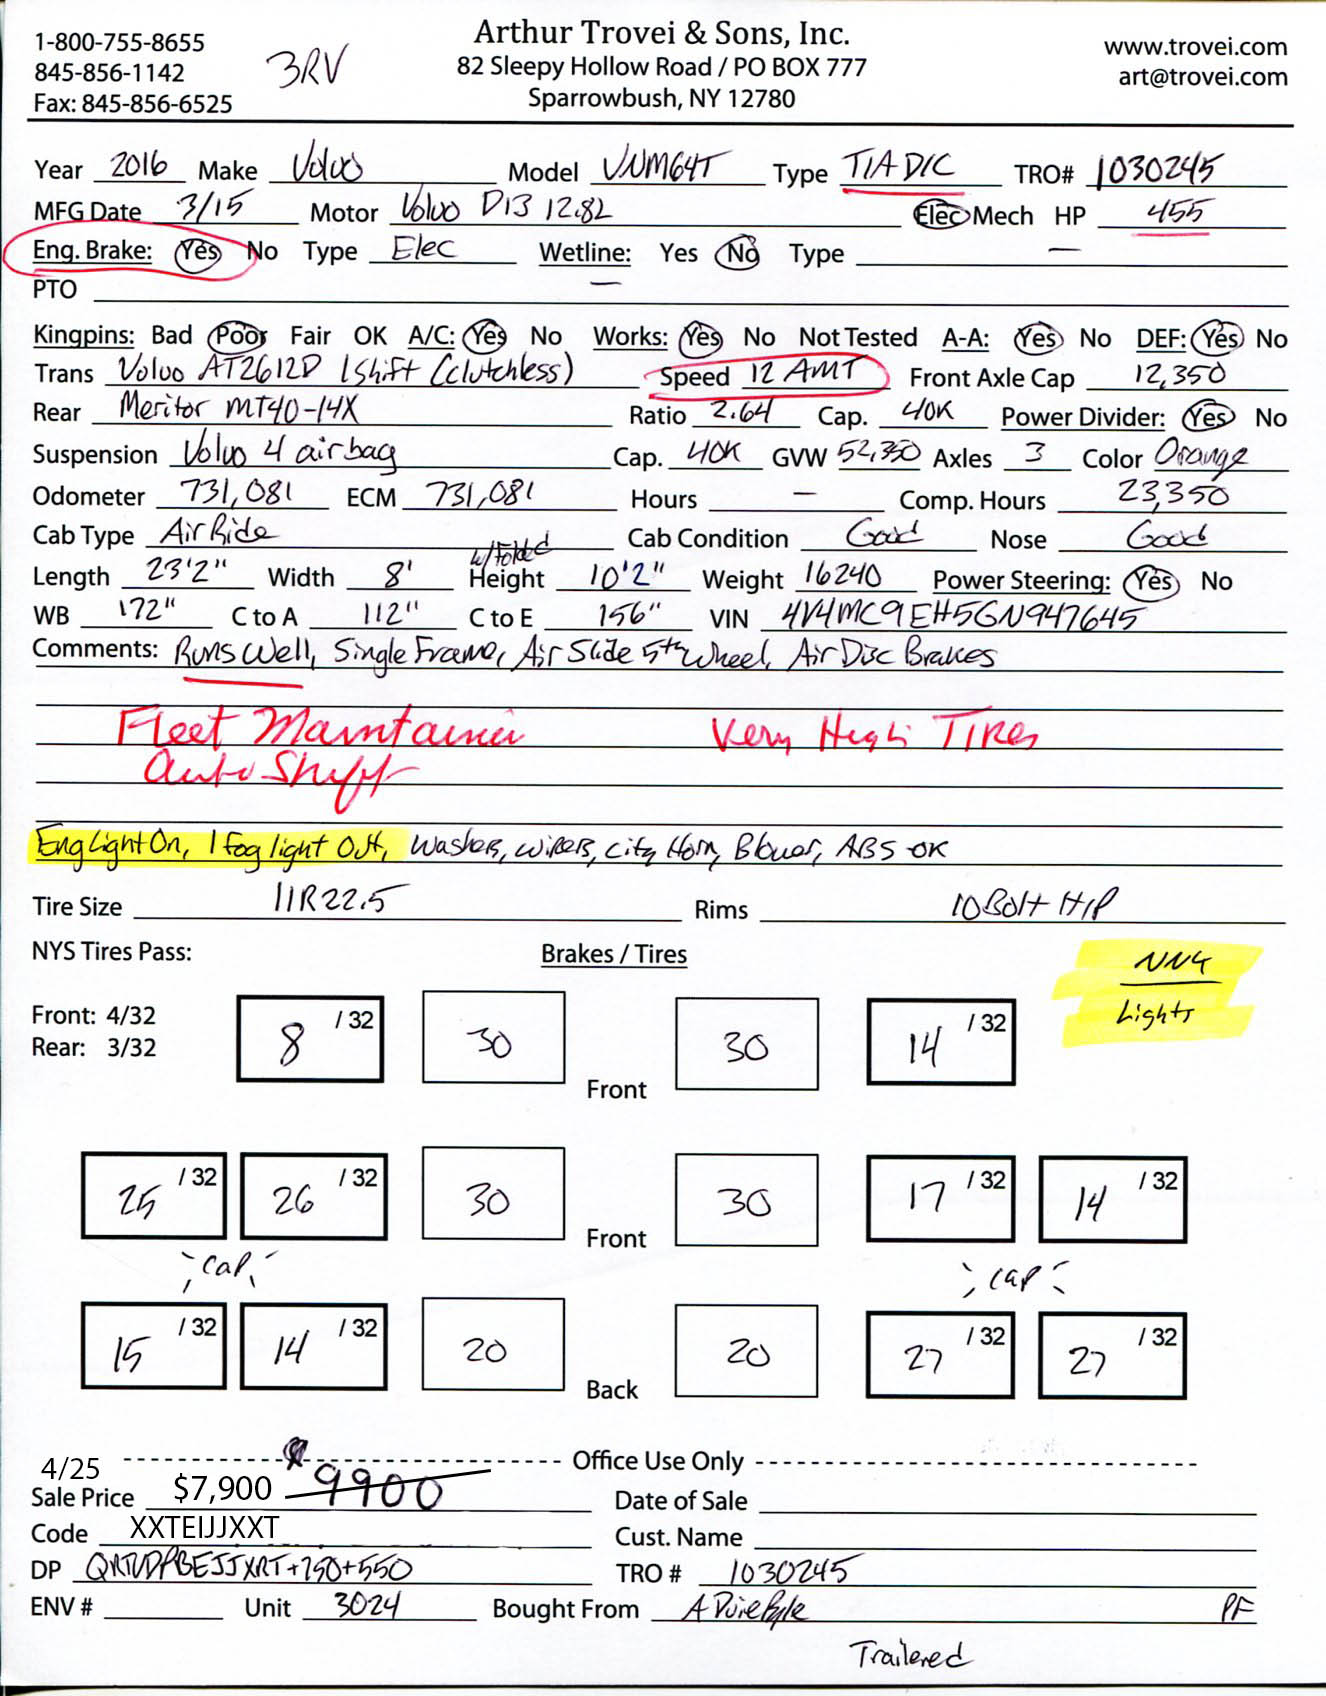 1-800-755-8655
845-856-1142
Fax: 845-856-6525
3RV
Arthur Trovei & Sons, Inc.
82 Sleepy Hollow Road / PO BOX 777
Sparrowbush, NY 12780
www.trovei.com
art@trovei.com
Year 2016 Make Volvo Model VNM64T Type T/A D/C TRO# 1030245
MFG Date 3/15 Motor Volvo D13 12.8L Elec Mech HP 455
Eng. Brake: Yes No Type Elec Wetline: Yes No Type —
PTO —
Kingpins: Bad Poor Fair OK A/C: Yes No Works: Yes No Not Tested A-A: Yes No DEF: Yes No
Trans Volvo AT2612D 1 Shift (clutchless) Speed 12 AMT Front Axle Cap 12,350
Rear Meritor MT40-14X Ratio 2.64 Cap. 40K Power Divider: Yes No
Suspension Volvo 4 airbag Cap. 40K GVW 52,350 Axles 3 Color Orange
Odometer 731,081 ECM 731,081 Hours — Comp. Hours 23,350
Cab Type Air Ride Cab Condition Good Nose Good
w/Folded
Length 23'2" Width 8' Height 10'2" Weight 16240 Power Steering: Yes No
WB 172" C to A 112" C to E 156" VIN 4V4MC9EH5GN947645
Comments: Runs Well, Single Frame, Air Slide 5th Wheel, Air Disc Brakes
Fleet Maintained Very High Tires
Auto Shift
Eng Light On, 1 fog light Out, Washers, Wipers, City Horn, Blower, ABS OK
Tire Size 11R22.5 Rims 10 Bolt H/P
NYS Tires Pass: Brakes / Tires
Front: 4/32
Rear: 3/32
Lights
8 /32 30 Front 30 14 /32
25 /32 26 /32 30 Front 30 17 /32 14 /32
Cap Cap
15 /32 14 /32 20 Back 20 27 /32 27 /32
4/25 Office Use Only
Sale Price $7,900 $9900 Date of Sale
Code XXTEIJJXXT Cust. Name
DP TRO # 1030245
ENV # Unit 3024 Bought From A Duie Pyle PF
Trailered